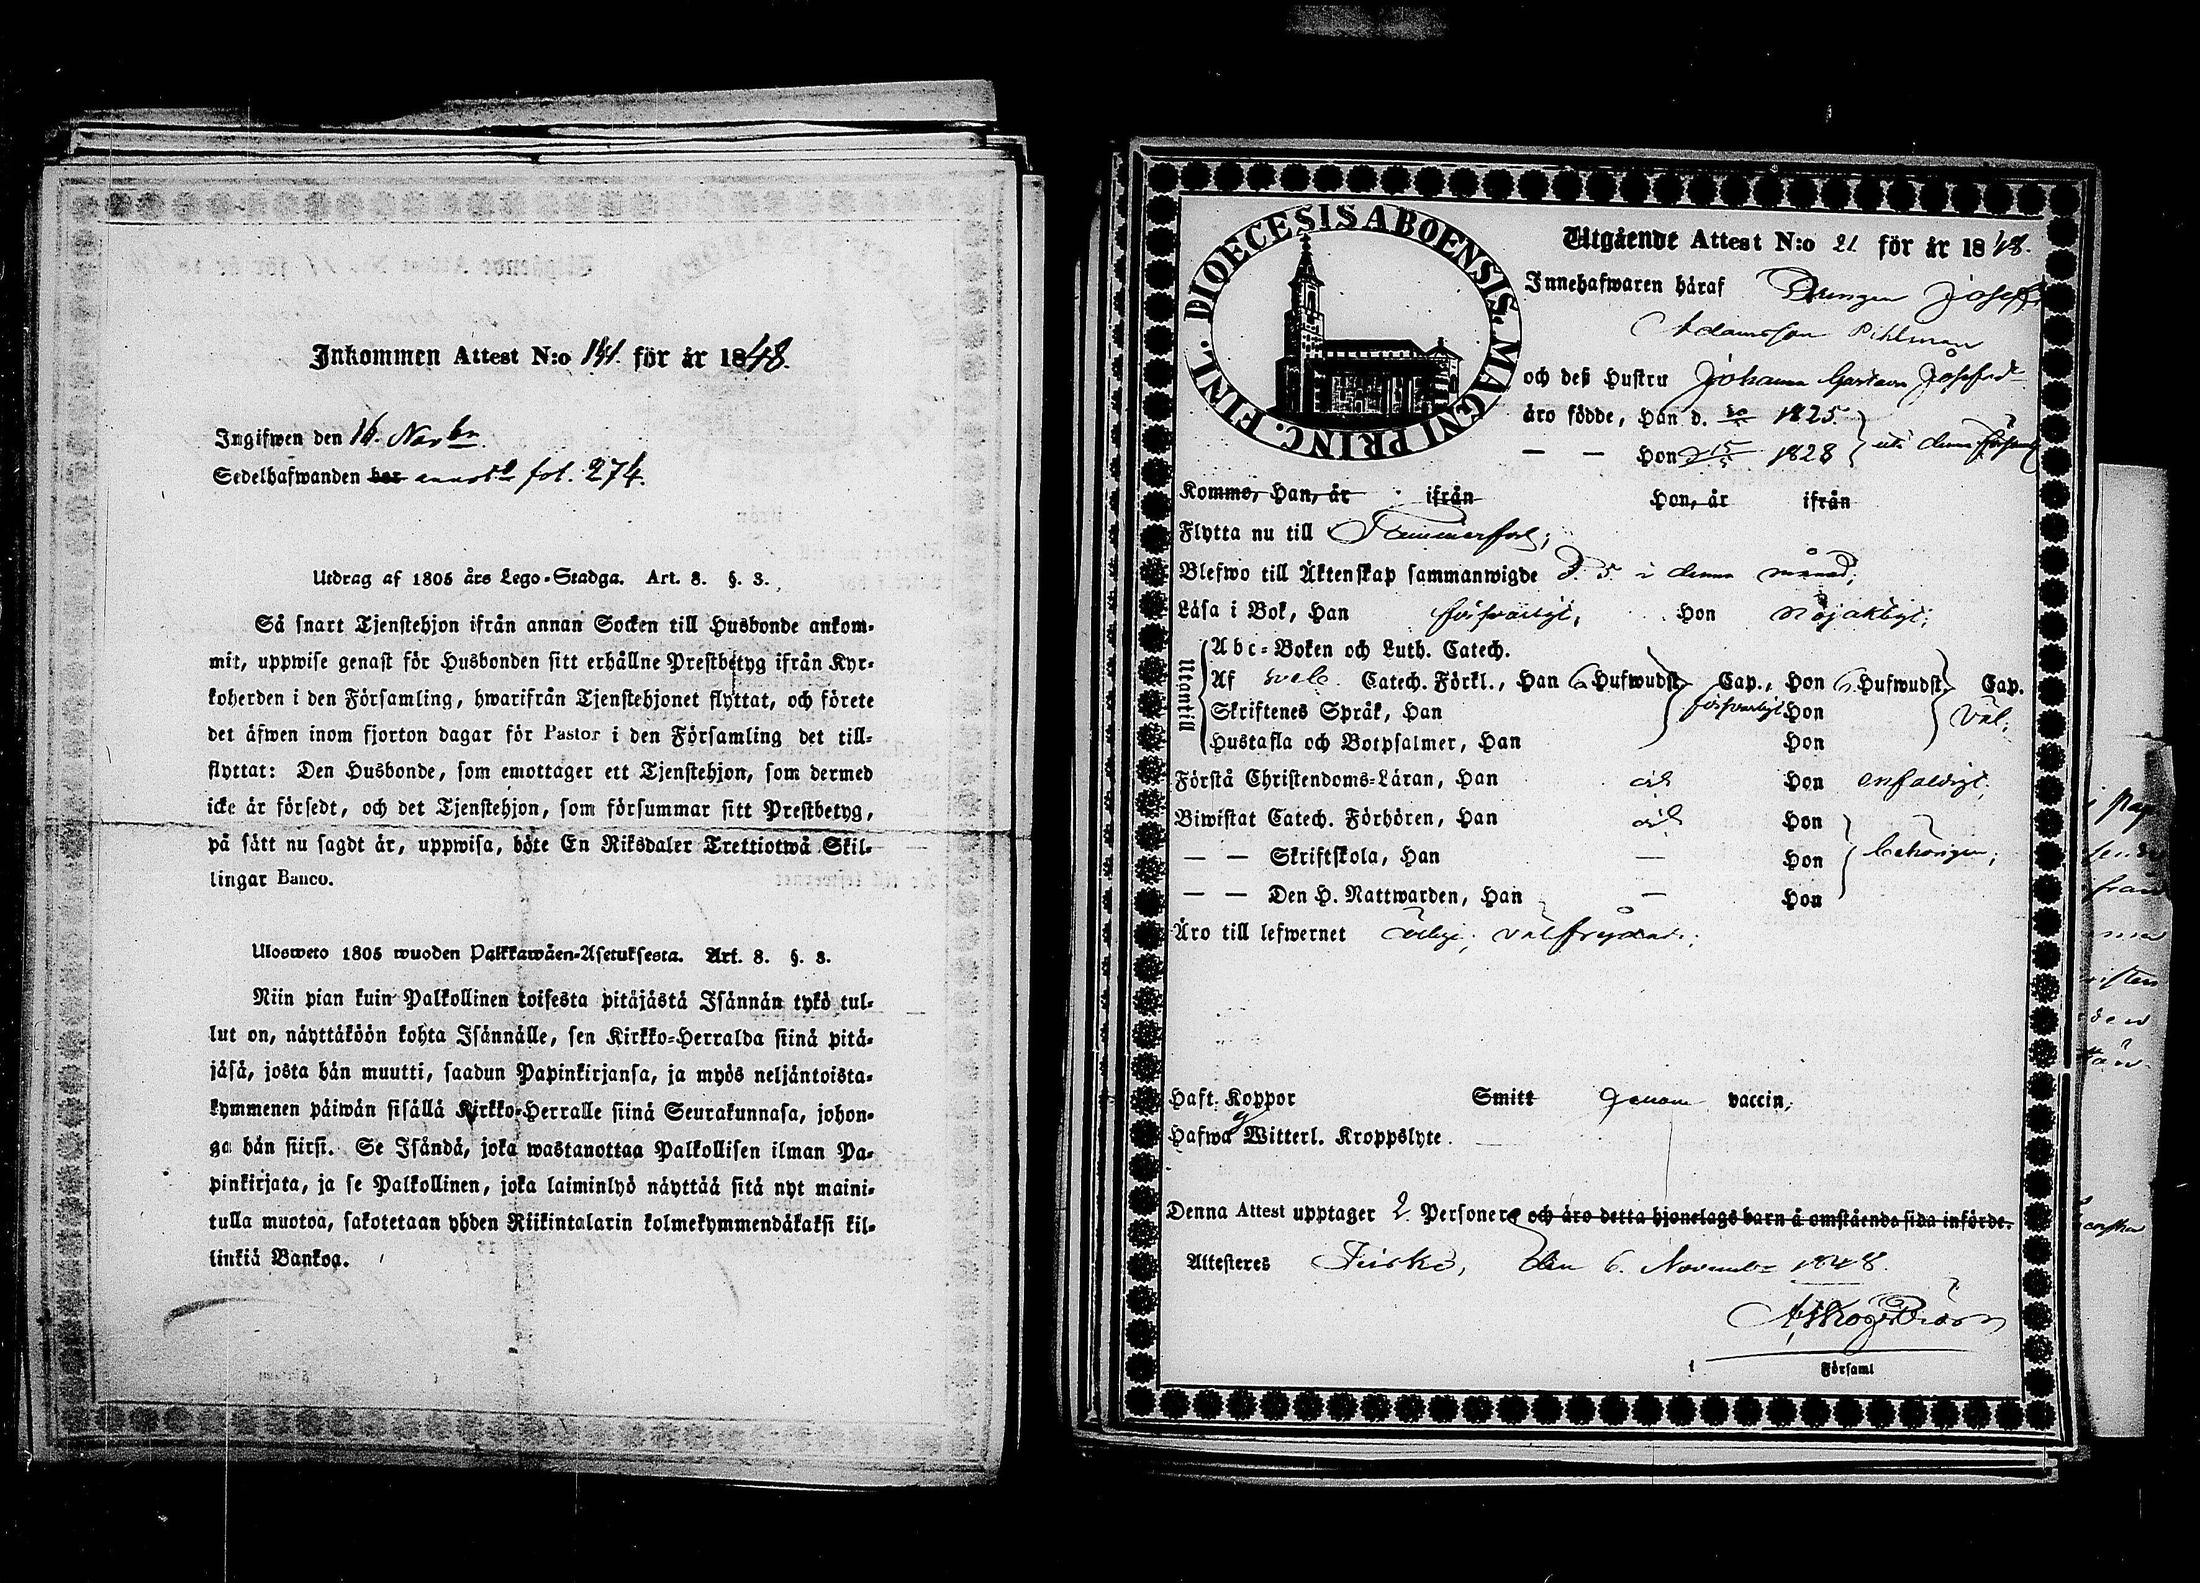 Inkommen Attest N:o 141. för år 1848.
Ingifwen den 16. Novbr
Sedelhafwanden har fol. 274.
Utdrag af 1805 års Lego-Stadga. Art. 8. §. 3.
Så snart Tjenstehjon ifrån annan Socken till Husbonde ankom-
mit, uppwise genast för Husbonden sitt erhållne Prestbetyg ifrån Kyr-
koherden i den Församling, hwarifrån Tjenstehjonet flyttat, och förete
det äfwen inom fjorton dagar för Pastor i den Församling det till-
flyttat: Den Husbonde, som emottager ett Tjenstehjon, som dermed
icke är försedt, och det Tjenstehjon, som försummar sitt Prestbetyg,
på sätt nu sagdt är, uppwisa, böte En Riksdaler Trettiotwå Skil-
lingar Banco.
Ulosweto 1805 wuoden Palkkawäen-Asetuksesta. Art. 8. §. 3.
Niin pian kuin Palkollinen toisesta pitäjästä Isännän tykö tul-
lut on, näyttäköön kohta Isännälle, sen Kirkko-Herralda siinä pitä-
jäsä, josta hän muutti, saadun Papinkirjansa, ja myös neljäntoista-
kymmenen päiwän sisällä Kirkko-Herralle siinä Seurakunnasa, johon-
ga hän siirsi. Se Isändä, joka wastanottaa Palkollisen ilman Pa-
pinkirjata, ja se Palkollinen, joka laiminlyö näyttää sitä nyt maini-
tulla muotoa, sakotetaan yhden Riikintalarin kolmekymmendäkaksi kil-
linkiä Bankoa.
DIOECESIS ABOENSIS. MAGNI PRINC. FINL.
Utgående Attest N:o 21 för år 1848.
Innehafwaren häraf Drengen Josef
Adamsson Pihlman
och deß Hustru Johanna Gustava Josefsdr
äro födde, Han d. 1825.
— — Hon d. 15 1828 uti denna församl
Kommo, Han, år ifrån Hon, år ifrån
Flytta nu till Tammerfors;
Blefwo till Äktenskap sammanwigde d. 5. i denna månad;
Läsa i Bok, Han försvarligt, Hon nöjaktigt;
Utantill
Abc-Boken och Luth. Catech.
Af Catech. Förkl., Han 6 Hufwudst Cap., Hon 6. Hufwudst Cap.
Skriftenes Språk, Han försvarligt Hon väl;
Hustafla och Botpsalmer, Han Hon
Förstå Christendoms-Läran, Han Hon enfaldigt;
Biwistat Catech. Förhören, Han Hon
— — Skriftskola, Han — Hon behörigen;
— — Den H. Nattwarden, Han — Hon
Äro till lefwernet ärlige, välfrejdade;
Haft Koppor Smitt genom vaccin;
Hafwa ej Witterl. Kroppslyte.
Denna Attest upptager 2. Personer och äro detta hjonelags barn å omstående sida införde.
Attesteres den 6. November 1848.
i Församl